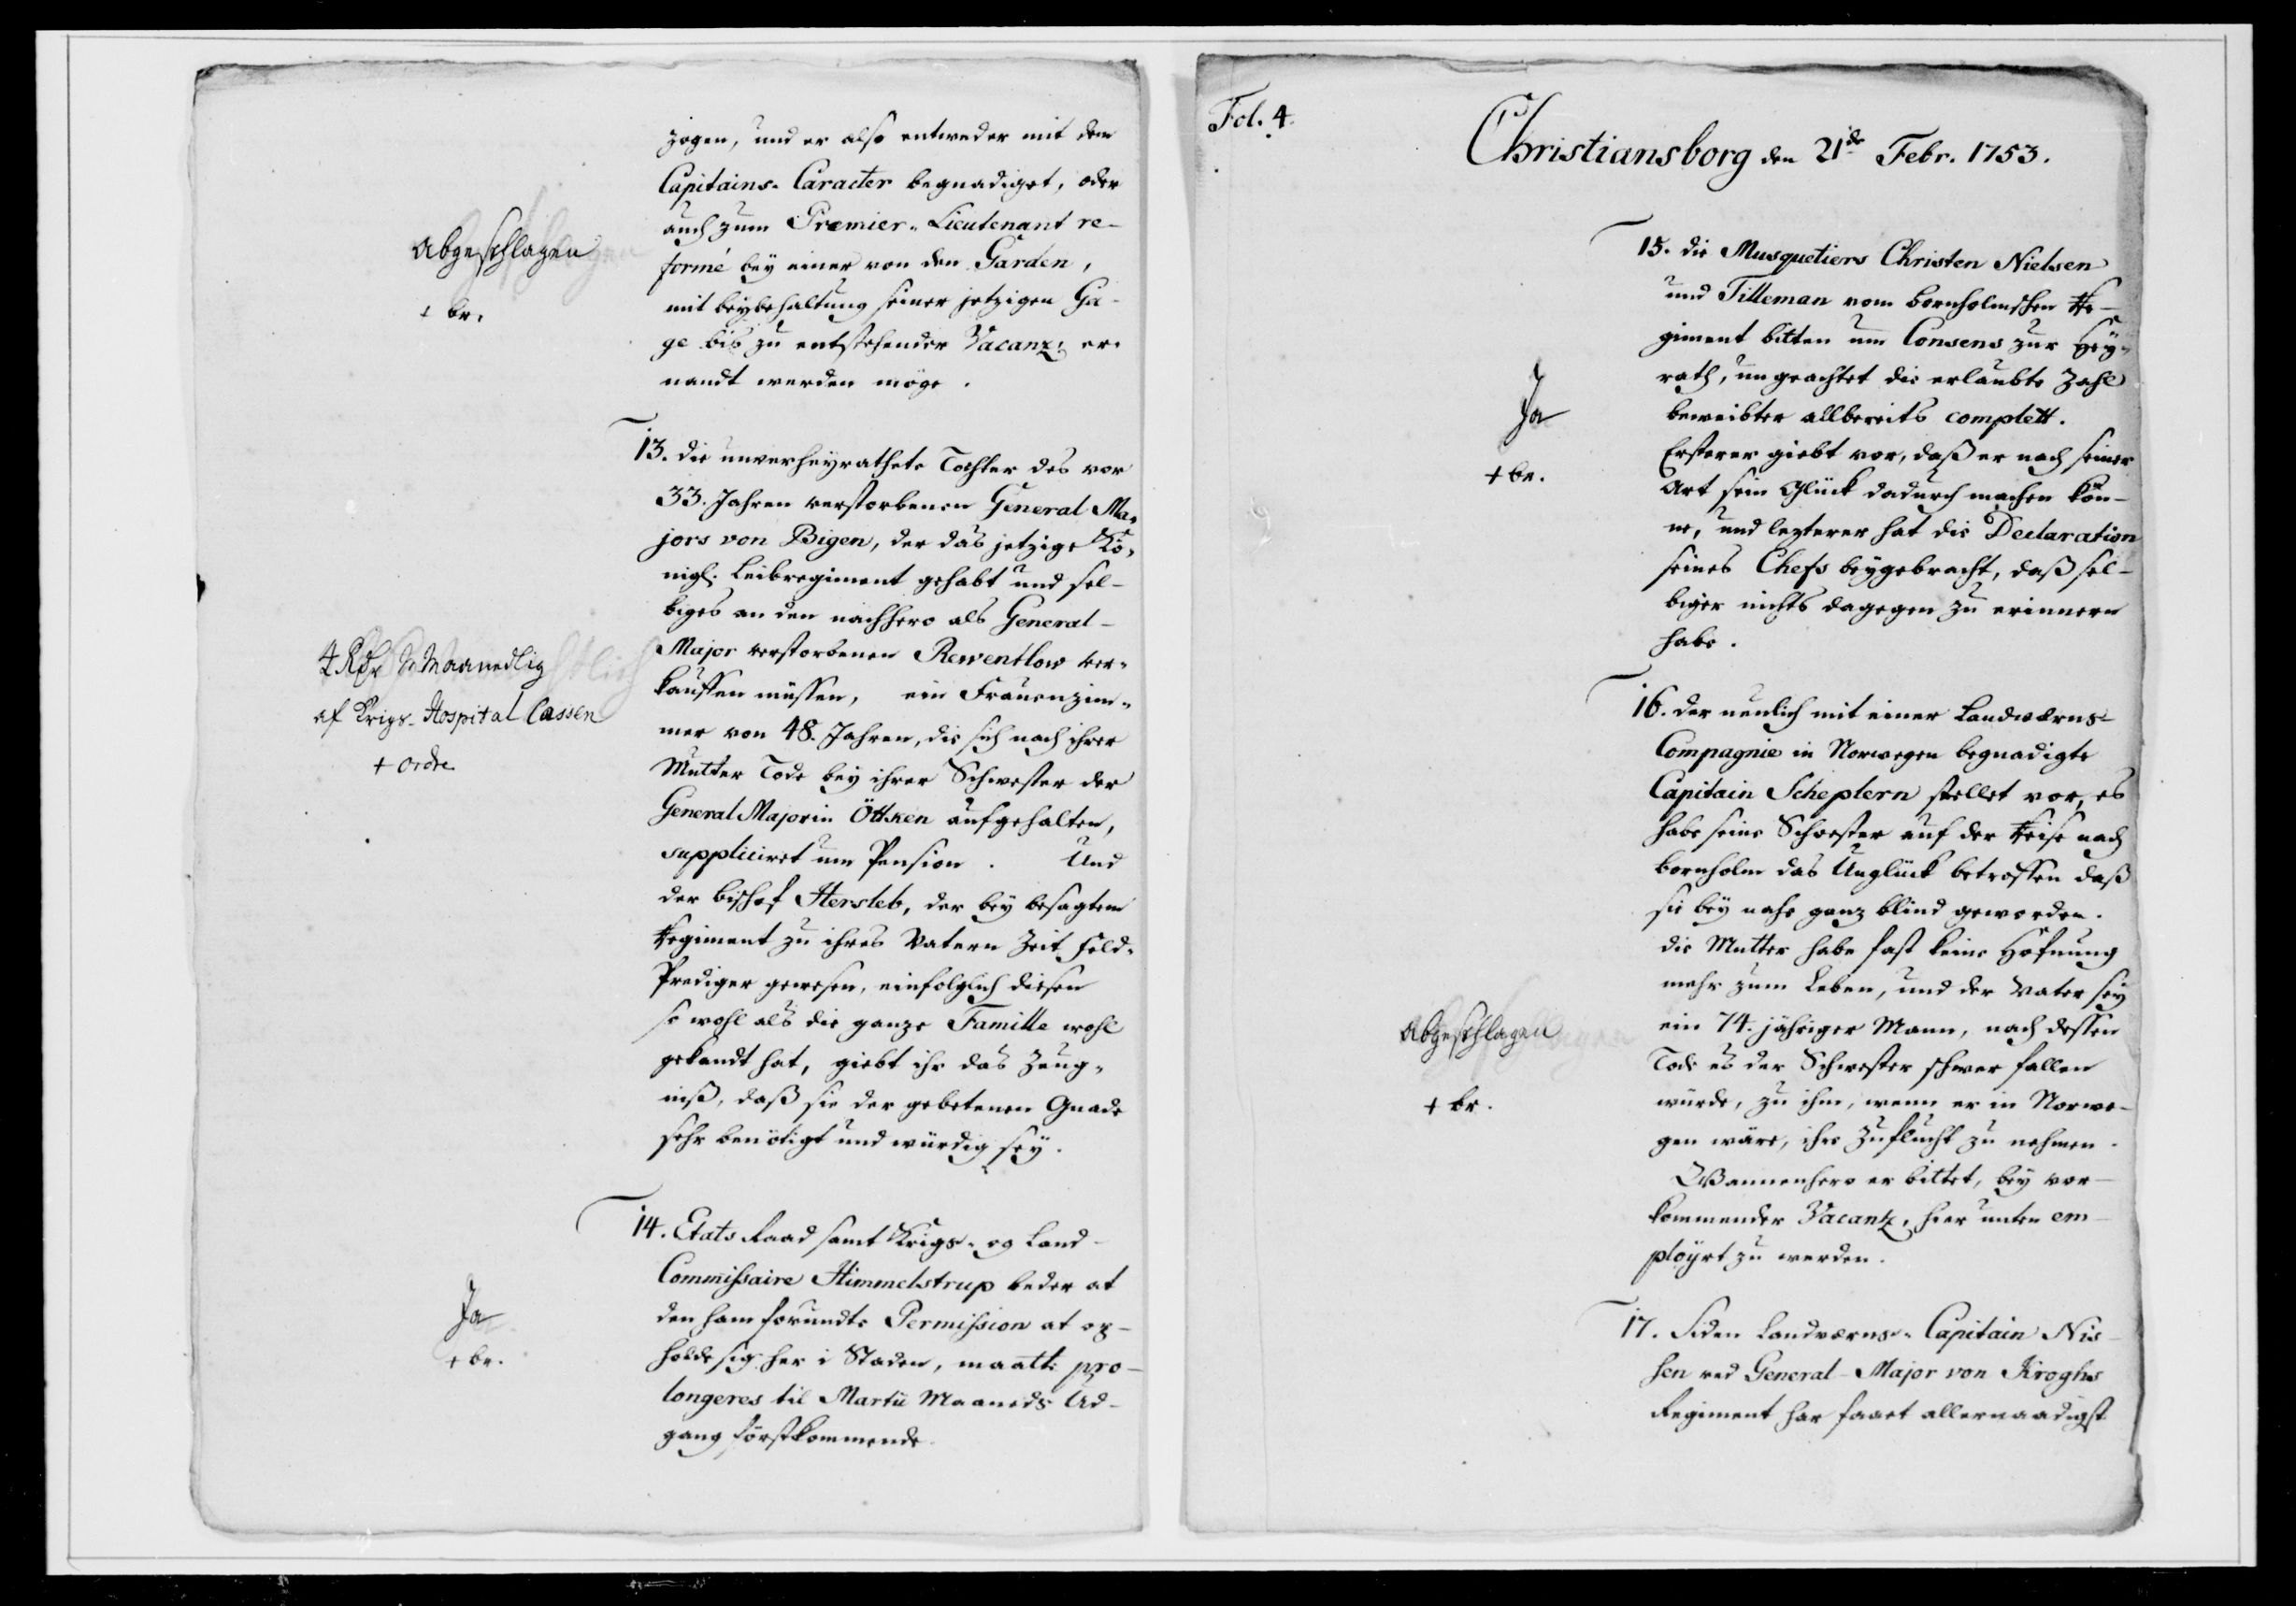 zogen, und er also entweder mit dem
Capitains-Caracter begnadiget, oder
auch zum Premier-Lieutenant re-
formé bey einer von den Garden,
mit beybehaltung seiner jetzigen Ga-
ge bis zu entstehender Vacanz, er-
nandt werden möge.
Abgeschlagen
+ br.
13. die unverheyrathete Tochter des vor
33. Jahren verstorbenen General Ma-
jors von Bigen, der das jetzige Kö-
nigl. Leibregiment gehabt und sel-
biges an den nachhero als General-
Major verstorbenen Rewentlow ver-
kauffen müssen, ein Frauenzim-
mer von 48. Jahren, die sich nach ihrer
Mutter Tode bey ihrer Schwester der
General Majorin Öttken aufgehalten,
suppliciret um Pension. Und
der bischof Hersleb, der bey besagtem
Regiment zu ihres Vatern Zeit Feld-
Prediger gewesen, einfolglich diesen
so wohl als die ganze Famille wohl
gekandt hat, giebt ihr das Zeug-
niß, daß sie der gebetenen Gnade
sehr benötigt und würdig sey.
4 Rdr Maanedlig
af Krigs-Hospital Cassen
+ ordre
14. Etats Raad samt Krigs- og Land-
Commissaire Himmelstrup beder at
den ham forundte Permission at op-
holde sig her i Staden, maatte pro-
longeres til Martii Maaneds Ud-
gang förstkommende.
Ja
+ br.
Fol. 4.
Christiansborg den 21de Febr. 1753.
15. die Musquetiers Christen Nielsen
und Tilleman vom bornholmschen Re-
giment bitten um Consens zur Hey-
rath, ungeachtet die erlaubte Zahl
beweibter allbereits complett.
Ersterer giebt vor, daß er nach seiner
Art sein Glück dadurch machen kön-
ne, und lezterer hat die Declaration
seines Chefs beygebracht, daß sel-
biger nichts dagegen zu erinnern
habe.
Ja
+ br.
16. der neulich mit einer Landværns-
Compagnie in Norwegen begnadigte
Capitain Scheplern stellet vor, es
habe seine Schwester auf der Reise nach
bornholm das Unglück betroffen daß
sie bey nahe ganz blind geworden.
die Mutter habe fast keine Hofnung
mehr zum Leben, und der Vater sey
ein 74. jähriger Mann, nach dessen
Tode es der Schwester schwer fallen
würde, zu ihm, wenn er in Norwe-
gen wäre, ihre Zuflucht zu nehmen.
Wannenhero er bittet, bey vor-
kommender Vacantz, hier unten em-
ployrt zu werden.
Abgeschlagen
+ br.
17. Siden Landværns-Capitain Nis-
sen ved General-Major von Kroghs
Regiment har faaet allernaadigst